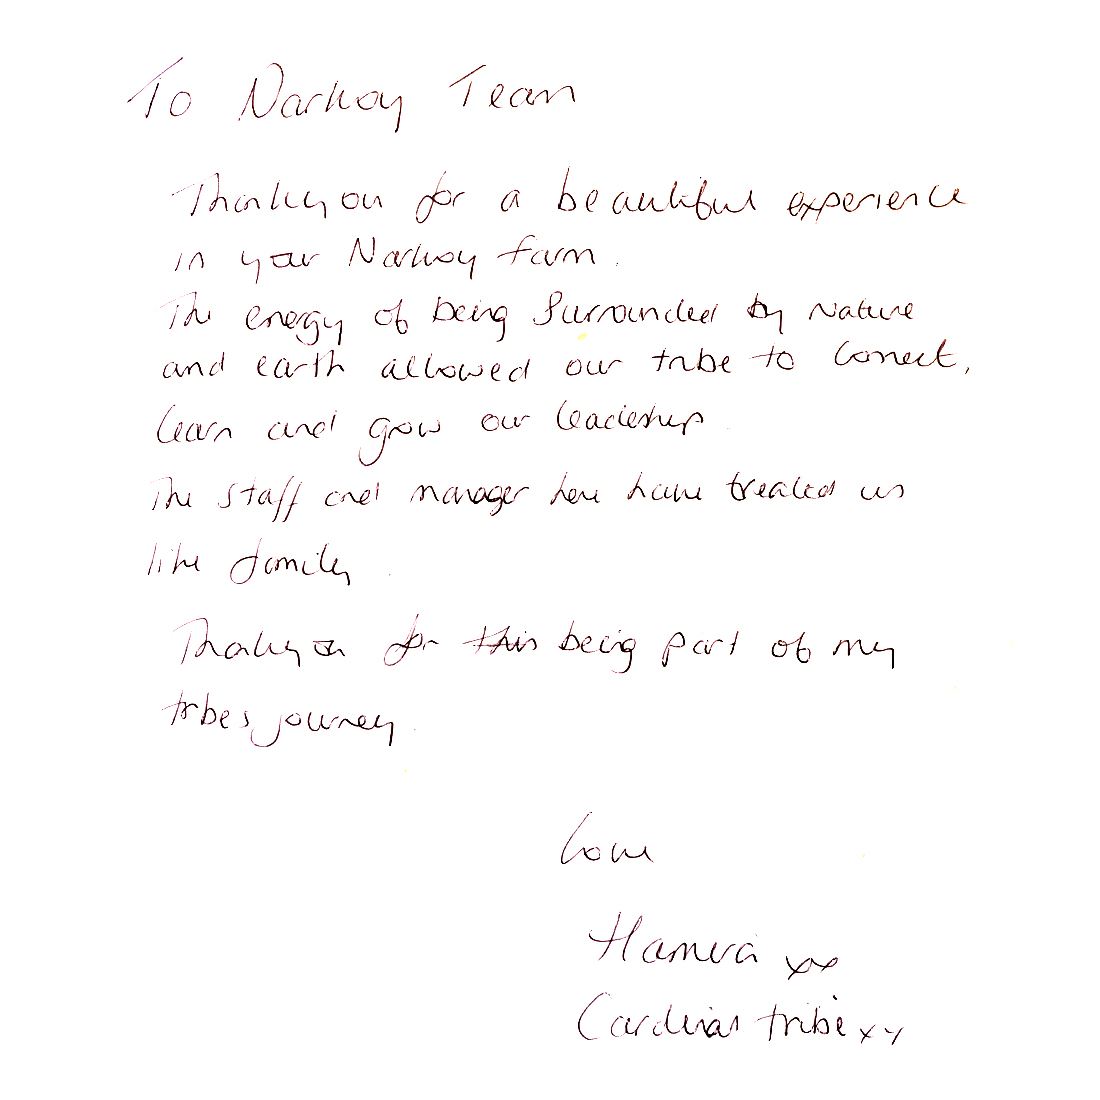 To Narkoy Team
Thankyou for a beautiful experience
in your Narkoy farm.
The energy of being surrounded by nature
and earth allowed our tribe to Connect,
learn and grow our leadership.
The staff and manager here have treated us
like family.
Thankyou for this being part of my
tribes journey.
Love
xx
tribe xx